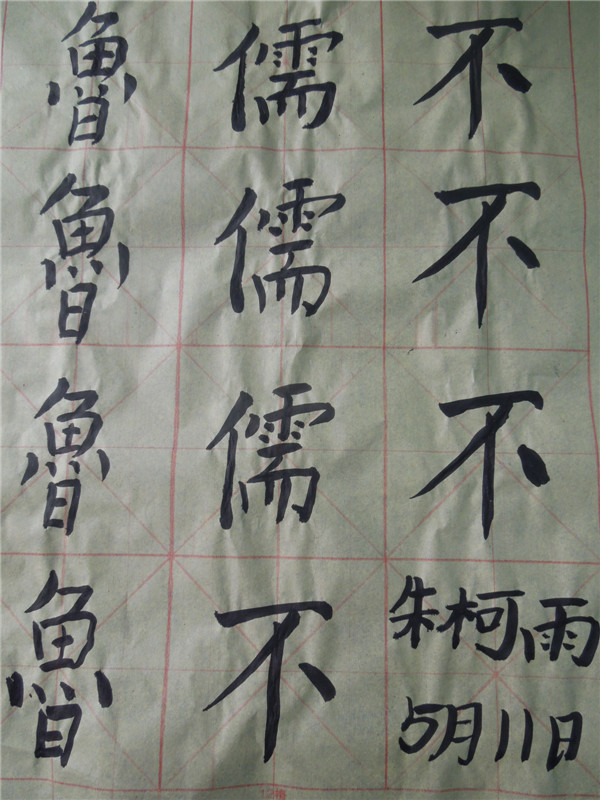 魯 儒 不
魯 儒 不
魯 儒 不
魯 不 朱柯雨
5月11日